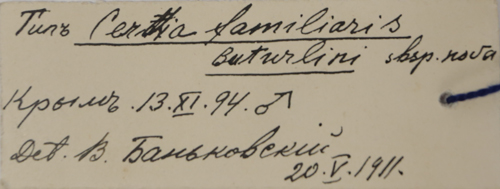 Типъ Certhia familiaris
buturlini sbsp. nova
Крымъ. 13.XI.94. ♂
Det. В. Баньковскій
20.V.1911.